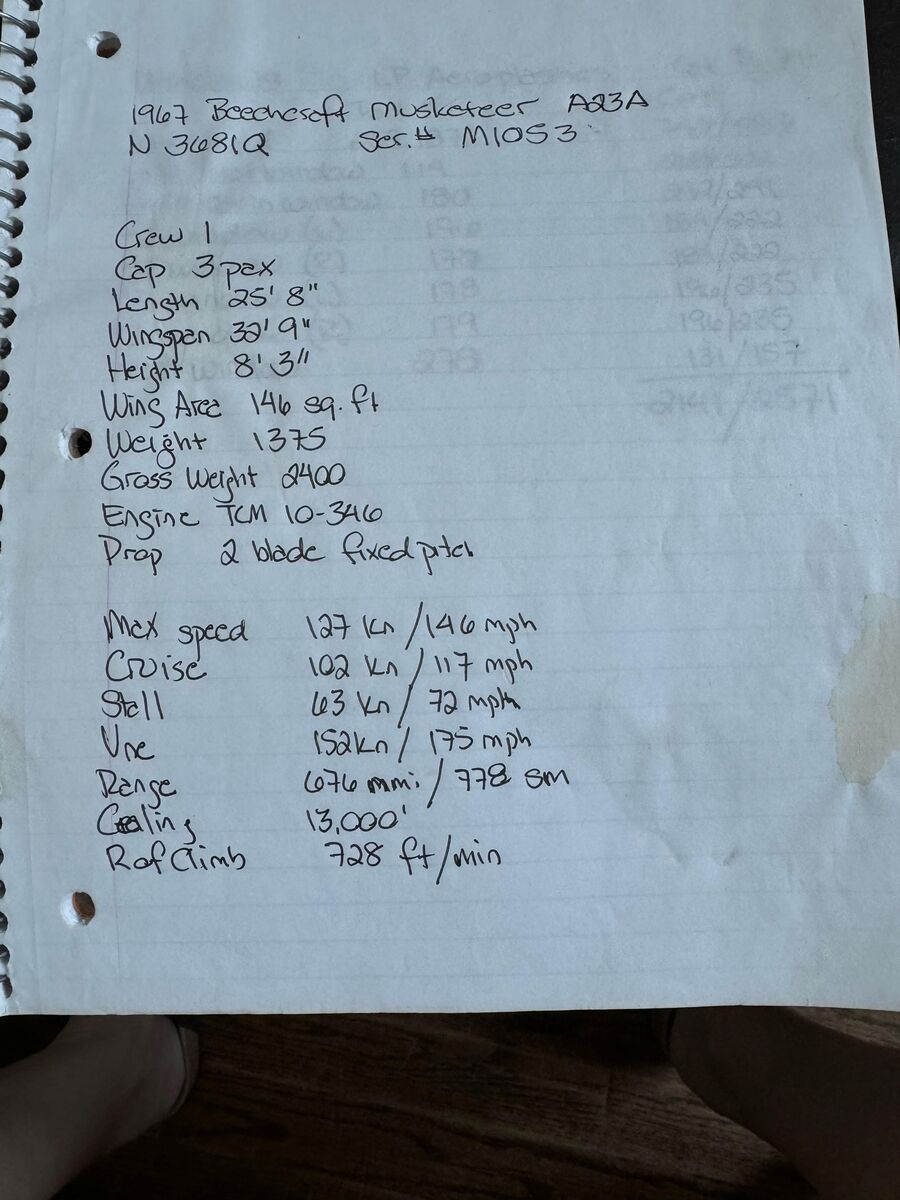 1967 Beechcraft Musketeer A23A
N 3681Q Ser.# M1053
Crew 1
Cap 3 pax
Length 25' 8"
Wingspan 32' 9"
Height 8' 3"
Wing Area 146 sq. ft
Weight 1375
Gross Weight 2400
Engine TCM 10-346
Prop 2 blade fixed pitch
Max speed 127 kn / 146 mph
Cruise 102 kn / 117 mph
Stall 63 kn / 72 mph
Vne 152kn / 175 mph
Range 676 nmi / 778 sm
Ceiling 13,000'
RofClimb 728 ft/min